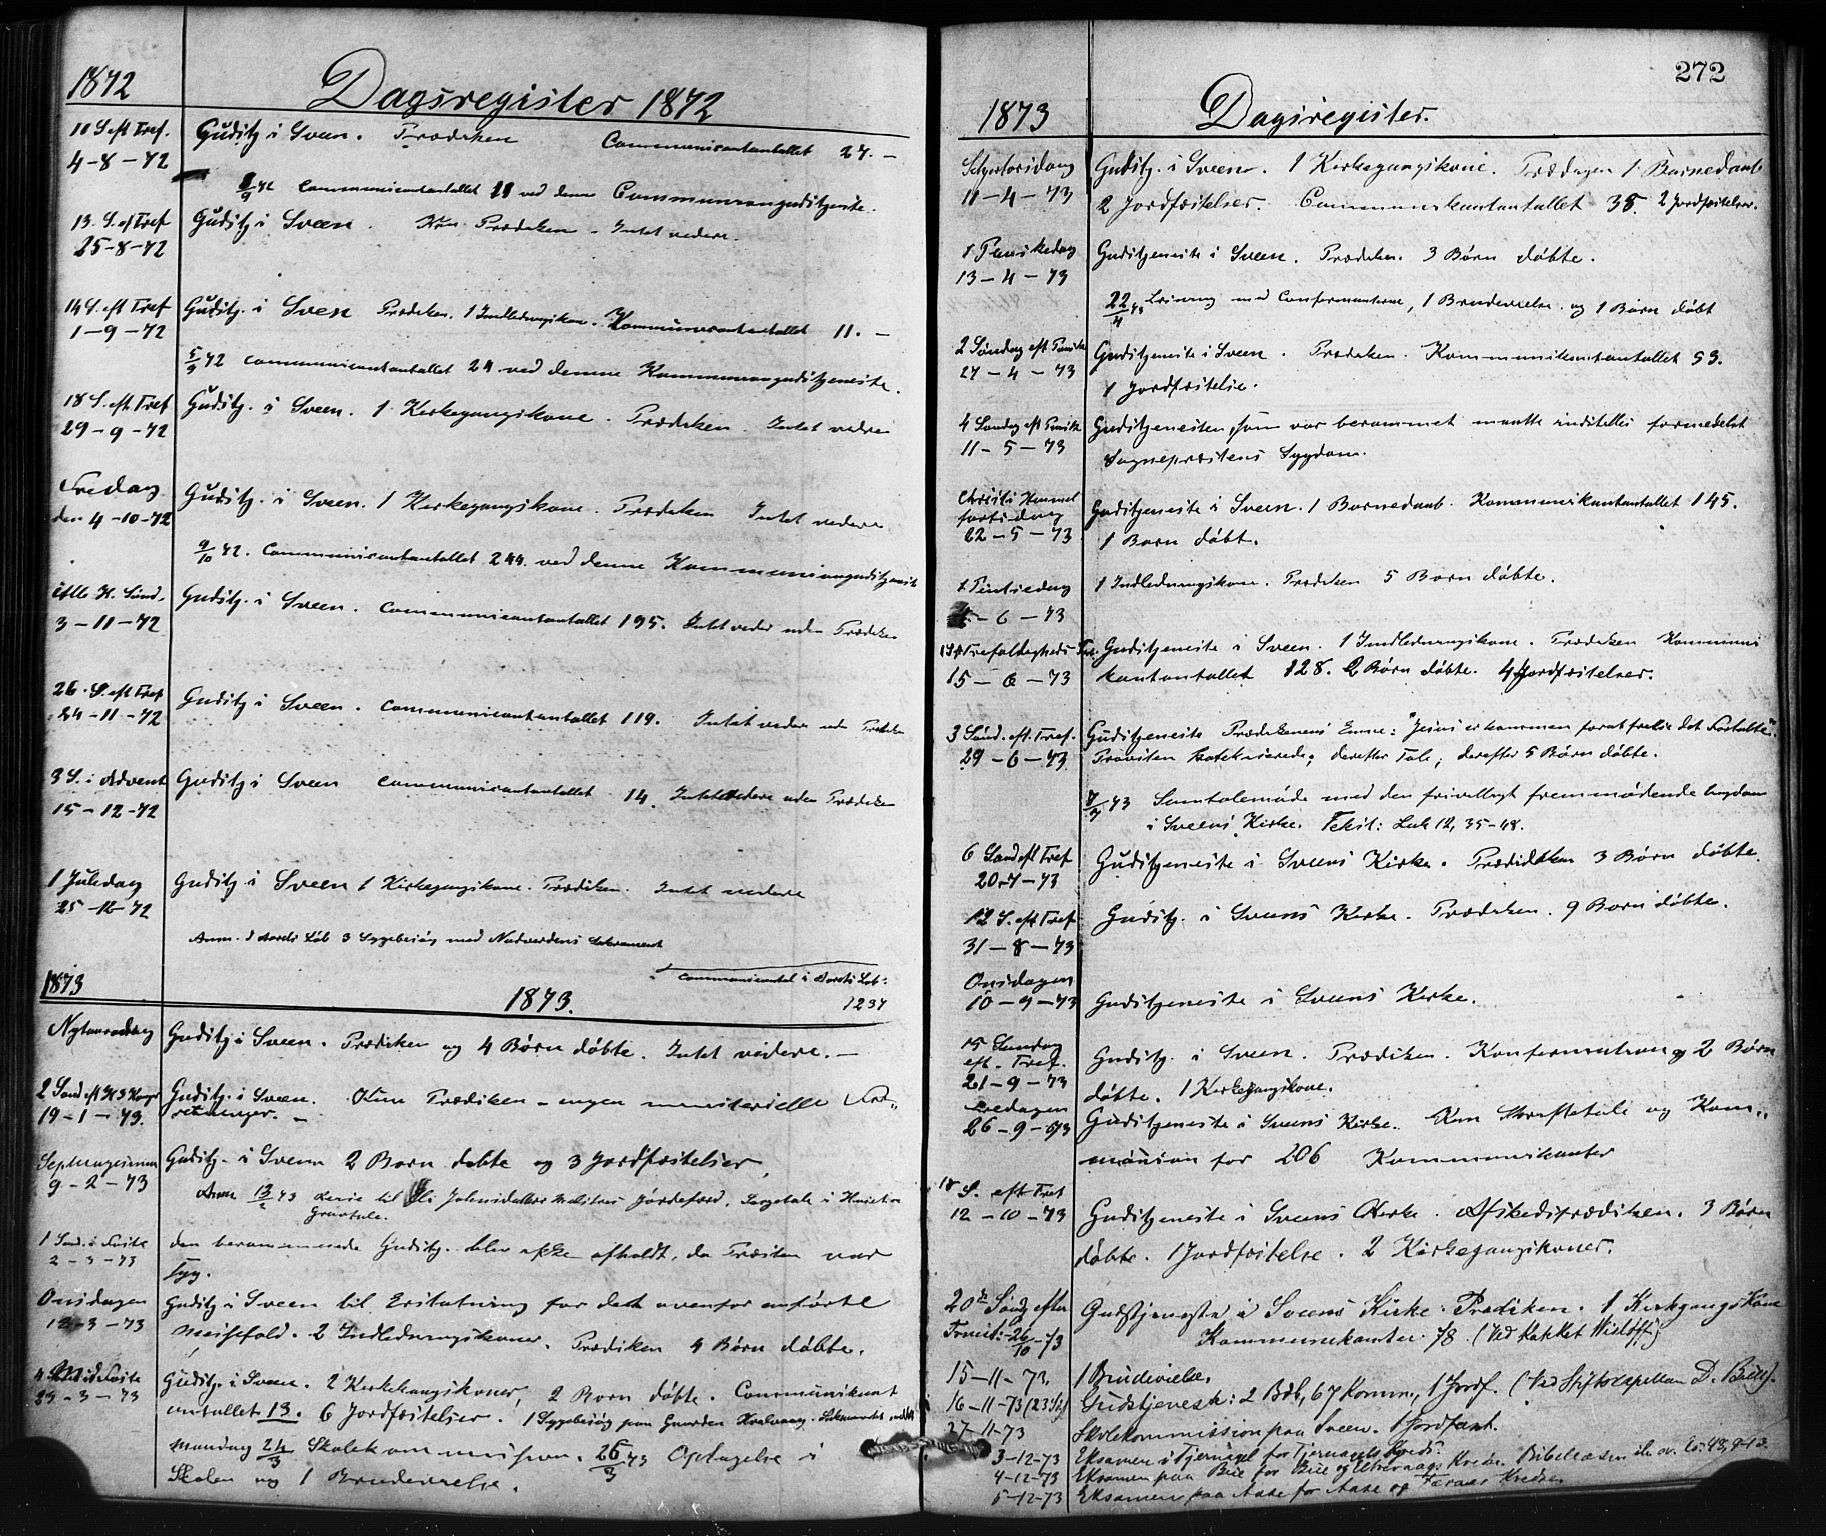 1872
Dagsregister 1872
11 S. eft Tref. Gudstj i Sveen. Prædiken Communicantantallet 27. —
4-8-72
9 72 Communicantantallet 11 ved denne Communiongudstjeneste.
13. S. eft Tref Gudstj i Sveen. Kun Prædiken. Intet videre.
25-8-72
14 S. eft Tref Gudstj. i Sveen Prædiken. 1 Indledningskone. Kommunicantantallet 11. —
1-9-72
5/9 72 Communicantantallet 24 ved denne Kommuniongudstjeneste.
18 S. eft Tref Gudstj. i Sveen. 1 Kirkegangskone. Prædiken. Intet videre
29-9-72
Fredag Gudstj. i Sveen. 1 Kirkegangskone. Prædiken Intet videre
den 4-10-72
9/10 72. Communicantantallet 244. ved denne Kommuniongudstjeneste
Alle H. Sönd. Gudstj. i Sveen. Communicantantallet 195. Intet videre uden Prædiken
3-11-72
26. S. eft Tref Gudstj i Sveen. Communicantantallet 119. Intet videre uden Prædiken
24-11-72
3 S. i Advent Gudstj i Sveen Communicantantallet 14. Intet videre uden Prædiken
15-12-72
1 Juledag Gudstj i Sveen 1 Kirkegangskone. Prædiken. Intet videre
25-12-72
Anm. I Aarets Løb 3 Sygebesøg med Nadverdens Sakrament
Communicantal i Aarets Løb:
1873 1873. 1237
Nytaarsdag Gudstj i Sveen. Prædiken og 4 Børn døbte. Intet videre. —
2 Sønd eft H 3 Konger Gudstj. i Sveen. Kun Prædiken - ingen ministerielle For„
19-1-73. retninger. —
Septuagesima Gudstj. i Sveen 2 Børn døbte og 3 Jordfæstelser.
9-2-73
Anm 13/2 73 Johnsdatter Jordefærd. Sørgetale i Huset og
Gravtale.
1 Sønd. i Faste den berammede Gudstj. blev ikke afholdt, da Præsten var
2-3-73 syg.
Onsdagen Gudstj i Sveen til Erstatning for det ovenfor anførte
12-3-73 Messefald. 2 Indledningskoner. Prædiken 4 Børn døbte.
4 S. i Faste Gudstj. i Sveen. 2 Kirkegangskoner, 2 Børn døbte. Communikant
23-3-73 antallet 13. 6 Jordfæstelser. 1 Sygebesøg paa Gaarden
Mandag 24/3 Skolekommission. 26/3 73 Optagelse i
Skolen og 1 Brudevielse.
272
1873 Dagsregister.
Skjærtorsdag Gudstj. i Sveen. 1 Kirkegangskone. Prædiken 1 Barnedaab
11-4-73 2 Jordfæstelser. Communikantantallet 38. 2 Jordfæstelser.
1 Paaskedag Gudstjeneste i Sveen. Prædiken. 3 Børn døbte.
13-4-73
22/4 73 Læsning med Confirmanterne, 1 Brudevielse og 1 Barn døbt
2 Søndag eft Paaske Gudstjeneste i Sveen. Prædiken. Kommunikantantallet 53.
27-4-73 1 Jordfæstelse.
4 Søndag eft Paaske Gudstjenesten, som var berammet maatte indstilles formedelst
11-5-73 Sognepræstens Sygdom.
Christi Himmel Gudstjeneste i Sveen. 1 Barnedaab. Kommunikantantallet 145.
fartsdag
22-5-73 1 Barn døbt.
1 Pintsedag 1 Indledningskone. Prædiken 5 Børn døbte.
1-6-73
Trefoldigheds Gudstjeneste i Sveen. 1 Indledningskone. Prædiken Kommuni
15-6-73 kantantallet 128. 2 Børn døbte. 4 Jordfæstelser.
3 Sönd. eft. Tref. Gudstjeneste Prædikenens Emne: "Jesus er kommen for at frelse det Fortabte".
29-6-73 Provsten katekiserede; derefter Tale; derefter 5 Børn døbte.
73 Samtalemøde med den frivilligt fremmødende Ungdom
i Sveens Kirke. Tekst: Luk 12, 35-48.
6 Sønd eft Tref Gudstjeneste i Sveens Kirke. Prædiken 3 Børn døbte.
20-7-73
12 S. eft Tref Gudstj. i Sveens Kirke. Prædiken. 9 Børn døbte.
31-8-73
Onsdagen
10-9-73 Gudstjeneste i Sveens Kirke.
15 Søndag
eft. Tref. Gudstj. i Sveen. Prædiken. Konfirmation og 2 Børn
21-9-73 døbte. 1 Kirkegangskone.
Fredagen Gudstjeneste i Sveens Kirke. Kun Skriftetale og Kom„
26-9-73
munion for 206 Kommunikanter
18 S. eft Tref
12-10-73 Gudstjeneste i Sveens Kirke. Afskedsprædiken. 3 Børn
døbte. 1 Jordfæstelse. 2 Kirkegangskoner.
20de Sønd efter Gudstjeneste i Sveens Kirke. Prædiken. 1 Kirkgangskone
Trinit: 26/10-73 Kommunikanter. 78. (Ved Wisløff)
15-11-73, 1 Brudevielse.
16-11-73 Gudstjeneste: 2 Bdb, 67 Komm., 1 Jordf. (Ved Stiftskapellan D. )
27-11-73 Skolekommission paa Sveen. 1 Jordfæst.
3-12-73 Eksamen i Tjernagel for Tjernagels Kreds.
4-12-73 Eksamen paa Bue for Bue og Kreds. Bibellæsen
5-12-73 Eksamen paa Aase for Aase og Kredse.